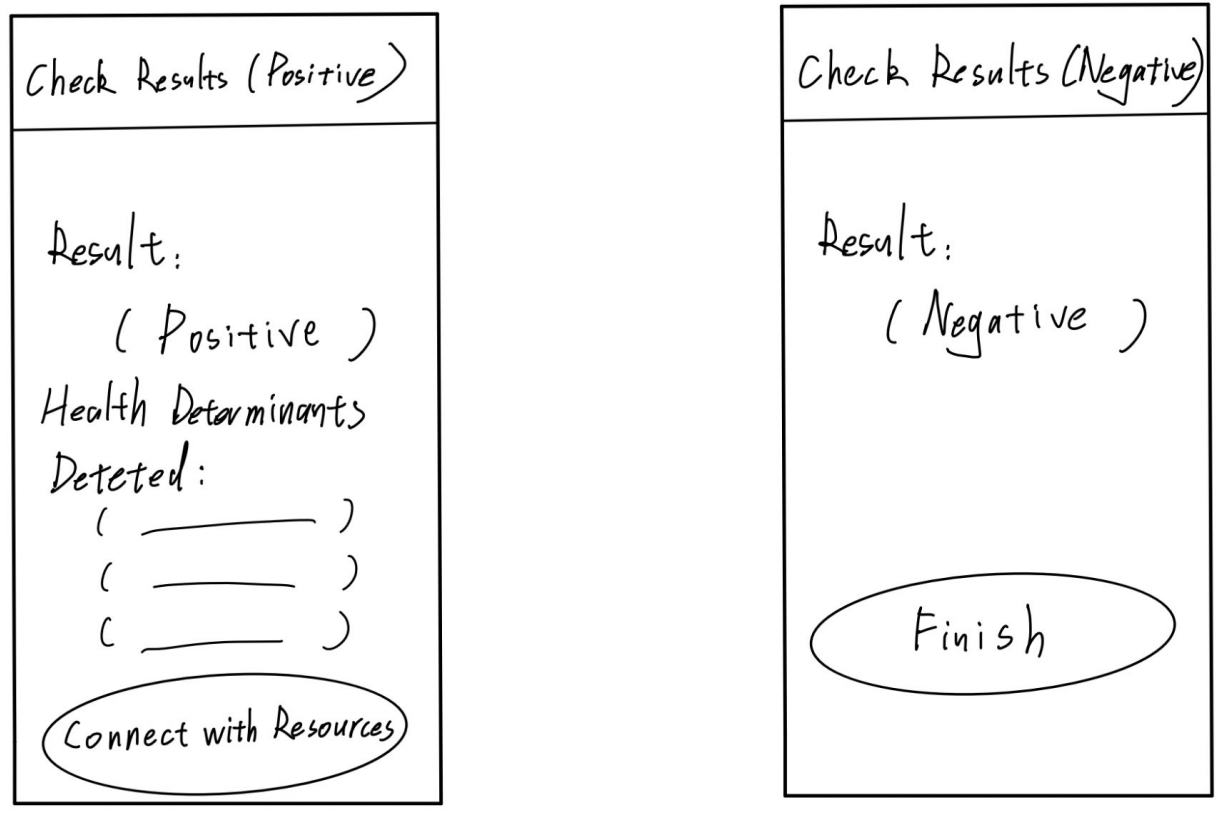 Check Results (Positive)
Result:
( Positive )
Health Determinants
Deteted:
( ______ )
( ______ )
( ______ )
Connect with Resources
Check Results (Negative)
Result:
( Negative )
Finish